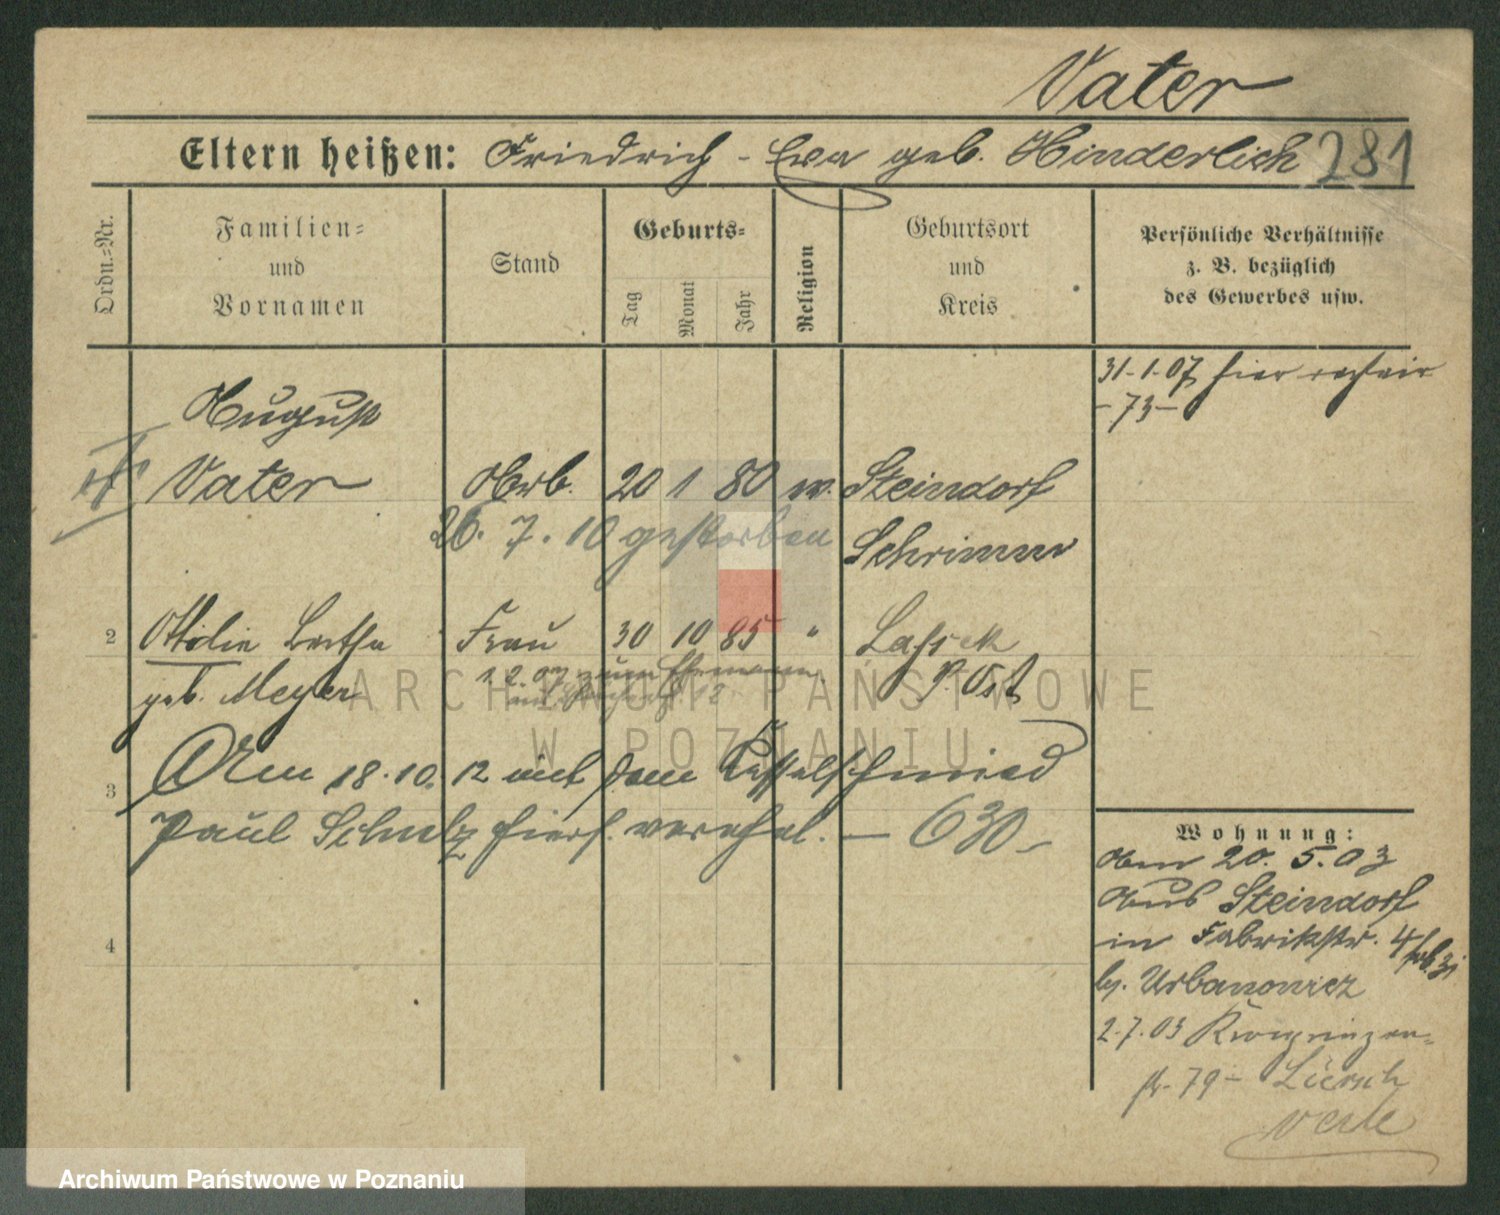 Vater
Eltern heißen: Friedrich - Eva geb. Hinderlich 281
Ordn.=Nr.
Familien=
und
Vornamen
Stand
Geburts=
Tag
Monat
Jahr
Religion
Geburtsort
und
Kreis
Persönliche Verhältnisse
z. B. bezüglich
des Gewerbes usw.
31.1.07 hier
- 73 -
August
Vater Arb. 20 1 80 ev. Steindorf
26. 7. 10 gestorben Schrimm
2 Ottilie Bertha Frau 30 10 85 " Lassek
geb. Meyer 1.2.07 zum Ehemann P. Ost
3 Am 18.10. 12 mit dem Kesselschmied
Paul Schulz hiers. verehel. — 630 -
4
Wohnung:
Am 20. 5. 03
aus Steindorf
in Fabrikstr. 4
bj. Urbanowicz
2.7.03 Kronprinzen=
str. 79 -
ARCHIWUM PAŃSTWOWE
W POZNANIU
Archiwum Państwowe w Poznaniu